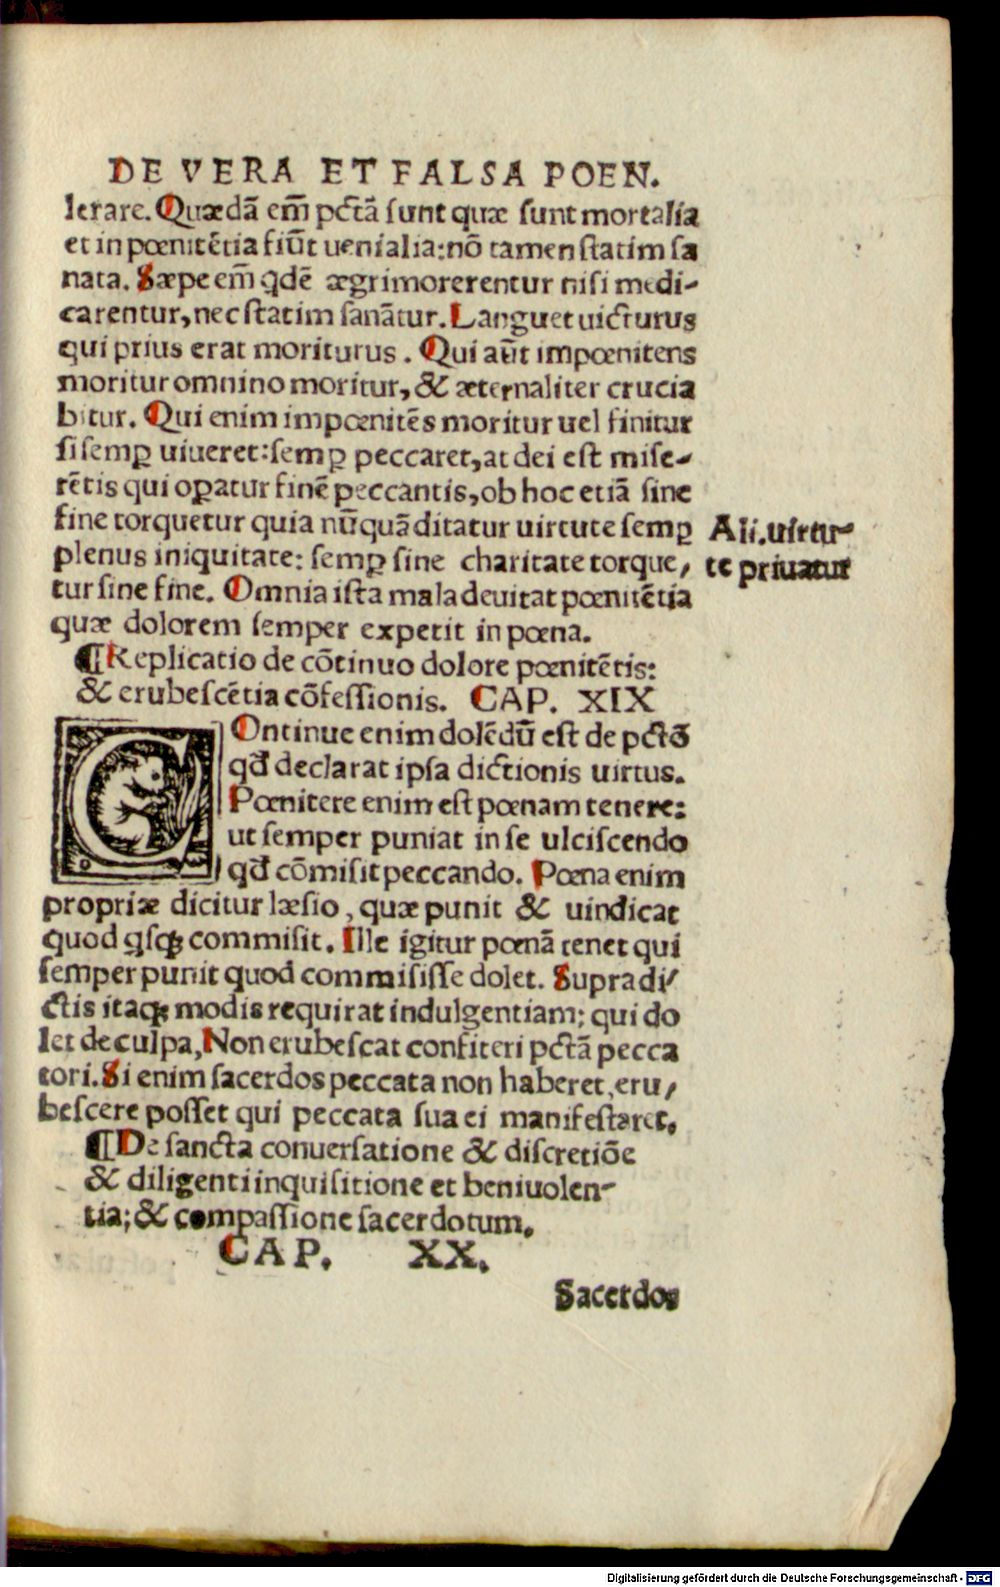 DE VERA ET FALSA POEN.
lerare. Quædã em̃ pctã sunt quæ sunt mortalia
et in pœnitẽtia fiũt uenialia: nõ tamen statim sa
nata. Sæpe em̃ qdẽ ægri morerentur nisi medi-
carentur, nec statim sanãtur. Languet uicturus
qui prius erat moriturus. Qui aũt impœnitens
moritur omnino moritur, & æternaliter crucia
bitur. Qui enim impœnitẽs moritur uel finitur
si semꝑ uiueret: semꝑ peccaret, at dei est mise-
rẽtis qui oꝑatur finẽ peccantis, ob hoc etiã sine
fine torquetur quia nũquã ditatur uirtute semꝑ
plenus iniquitate: semꝑ sine charitate torque,
tur sine fine. Omnia ista mala deuitat pœnitẽtia
quæ dolorem semper expetit in pœna.
Ali. uirtu-
te priuatur
¶ Replicatio de cõtinuo dolore pœnitẽtis:
& erubescẽtia cõfessionis. CAP. XIX
COntinue enim dolẽdũ est de pctõ
qđ declarat ipsa dictionis uirtus.
Pœnitere enim est pœnam tenere:
ut semper puniat in se ulciscendo
qđ cõmisit peccando. Pœna enim
propriæ dicitur læsio, quæ punit & uindicat
quod qsqꝫ commisit. Ille igitur pœnã tenet qui
semper punit quod commisisse dolet. Supradi/
ctis itaqꝫ modis requirat indulgentiam; qui do
let de culpa, Non erubescat confiteri pctã pecca
tori. Si enim sacerdos peccata non haberet, eru/
bescere posset qui peccata sua ei manifestaret.
¶ De sancta conuersatione & discretiõe
& diligenti inquisitione et beniuolen-
tia; & compassione sacerdotum.
CAP. XX.
Sacerdos
Digitalisierung gefördert durch die Deutsche Forschungsgemeinschaft - DFG